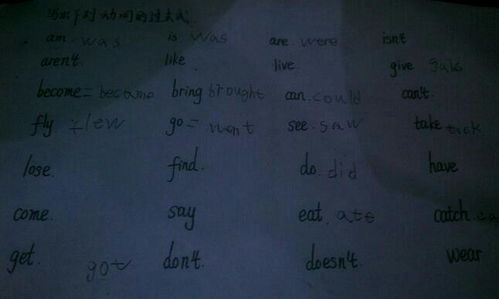 对 动词的过去式
am. was is was are. were isn't
aren't. like live. give
become = became bring brought can. could can't.
fly. flew go = went see. saw take
lose. find. do did have
come. say eat. ate catch.
get. got don't. doesn't. wear